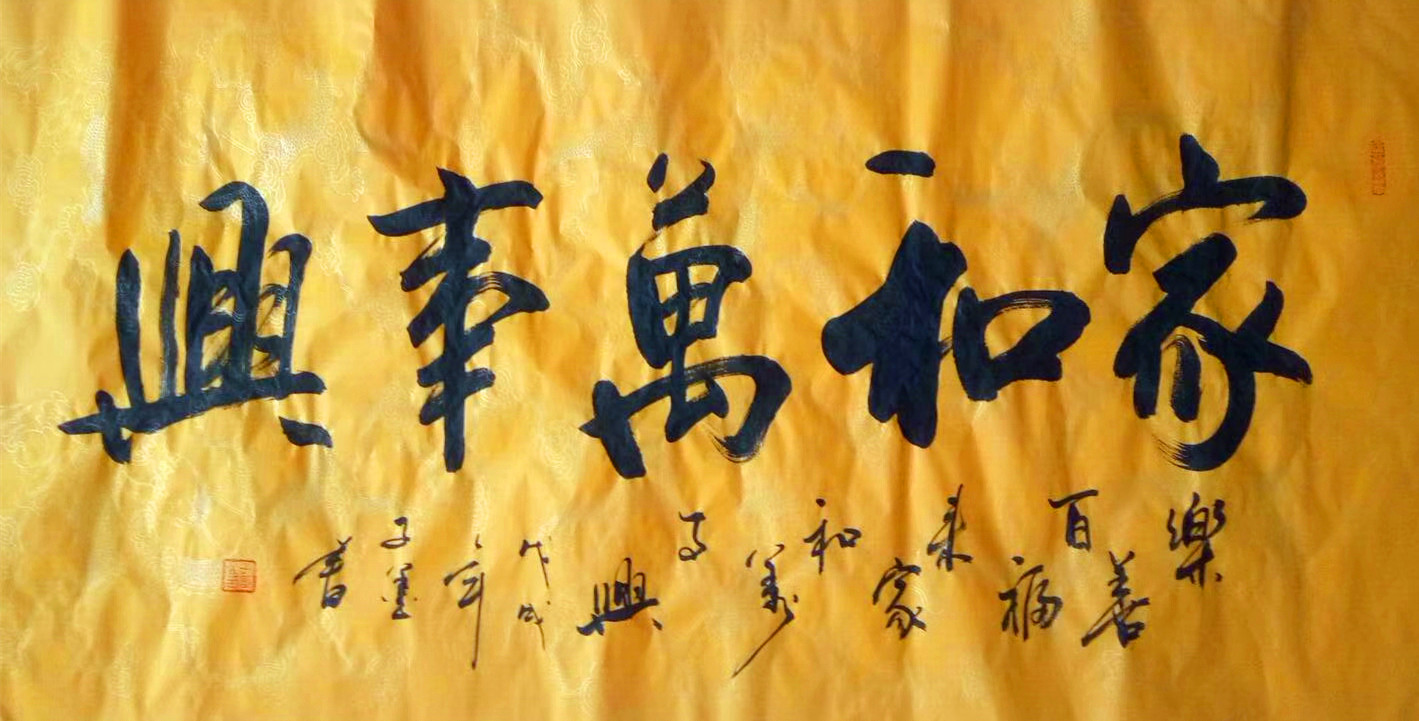 家和萬事興
樂善百福來家和萬事興戊戌年子墨書